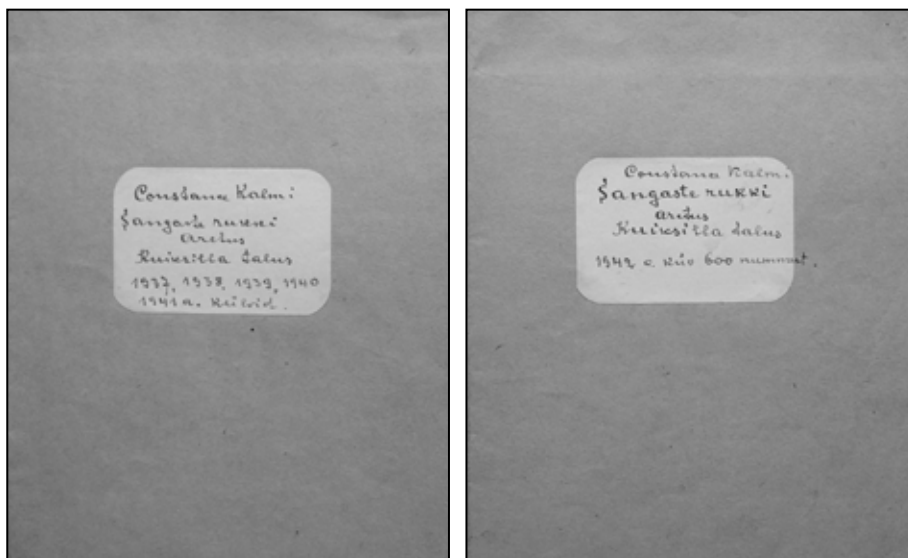 Constans Kalmi
Sangaste rukki
aretus
Kuiksilla talus
1937, 1938, 1939, 1940
1941 a. külvid.
Constans Kalmi
Sangaste rukki
aretus
Kuiksilla talus
1942 a. külv 600 nummrit.